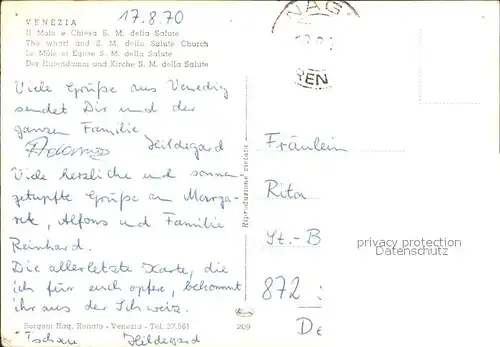 17.8.70
VENEZIA
Il Molo e Chiesa S. M. della Salute
The wharf and S. M. della Salute Church
Le Môle et Eglise S. M. della Salute
Der Hafendamm und Kirche S. M. della Salute
Viele Grüße aus Venedig
sendet Dir und der
ganzen Familie
Hildegard
Viele herzliche und sonnen-
getupfte Grüße an Marga-
ret, Alfons und Familie
Reinhard.
Die allerletzte Karte, die
ich für euch opfere, bekommt
ihr aus der Schweiz.
Tschau Hildegard
Borgoni Rag. Renato - Venezia - Tel. 37.561
209
Riproduzione vietata
Fräulein
Rita
St.-B
872
De
privacy protection
Datenschutz